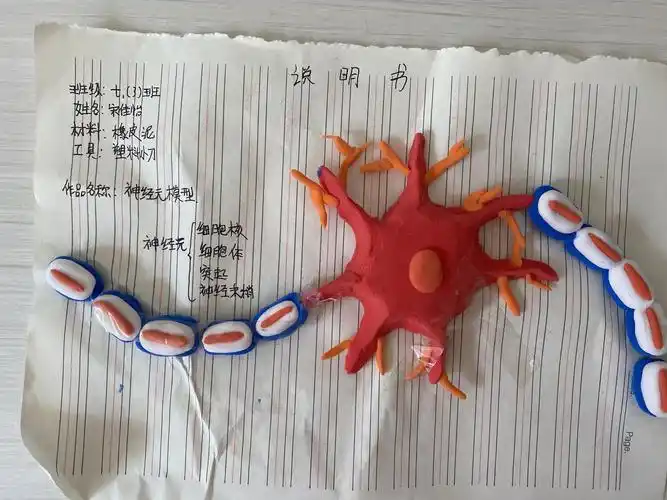 说明书
班级: 七.(3)班
姓名: 宋佳怡
材料: 橡皮泥
工具: 塑料小刀
作品名称: 神经元模型
神经元
细胞核
细胞体
突起
神经末梢
Page: